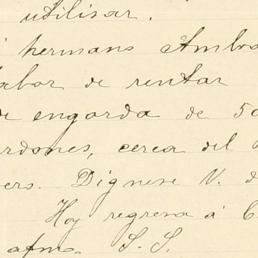 utilisar.
hermano Ambro
labor de rentar
de engorda de 50
rdones, cerca del
ers. Dignese V. d
Hoy regresa á C
afmo. S. S.